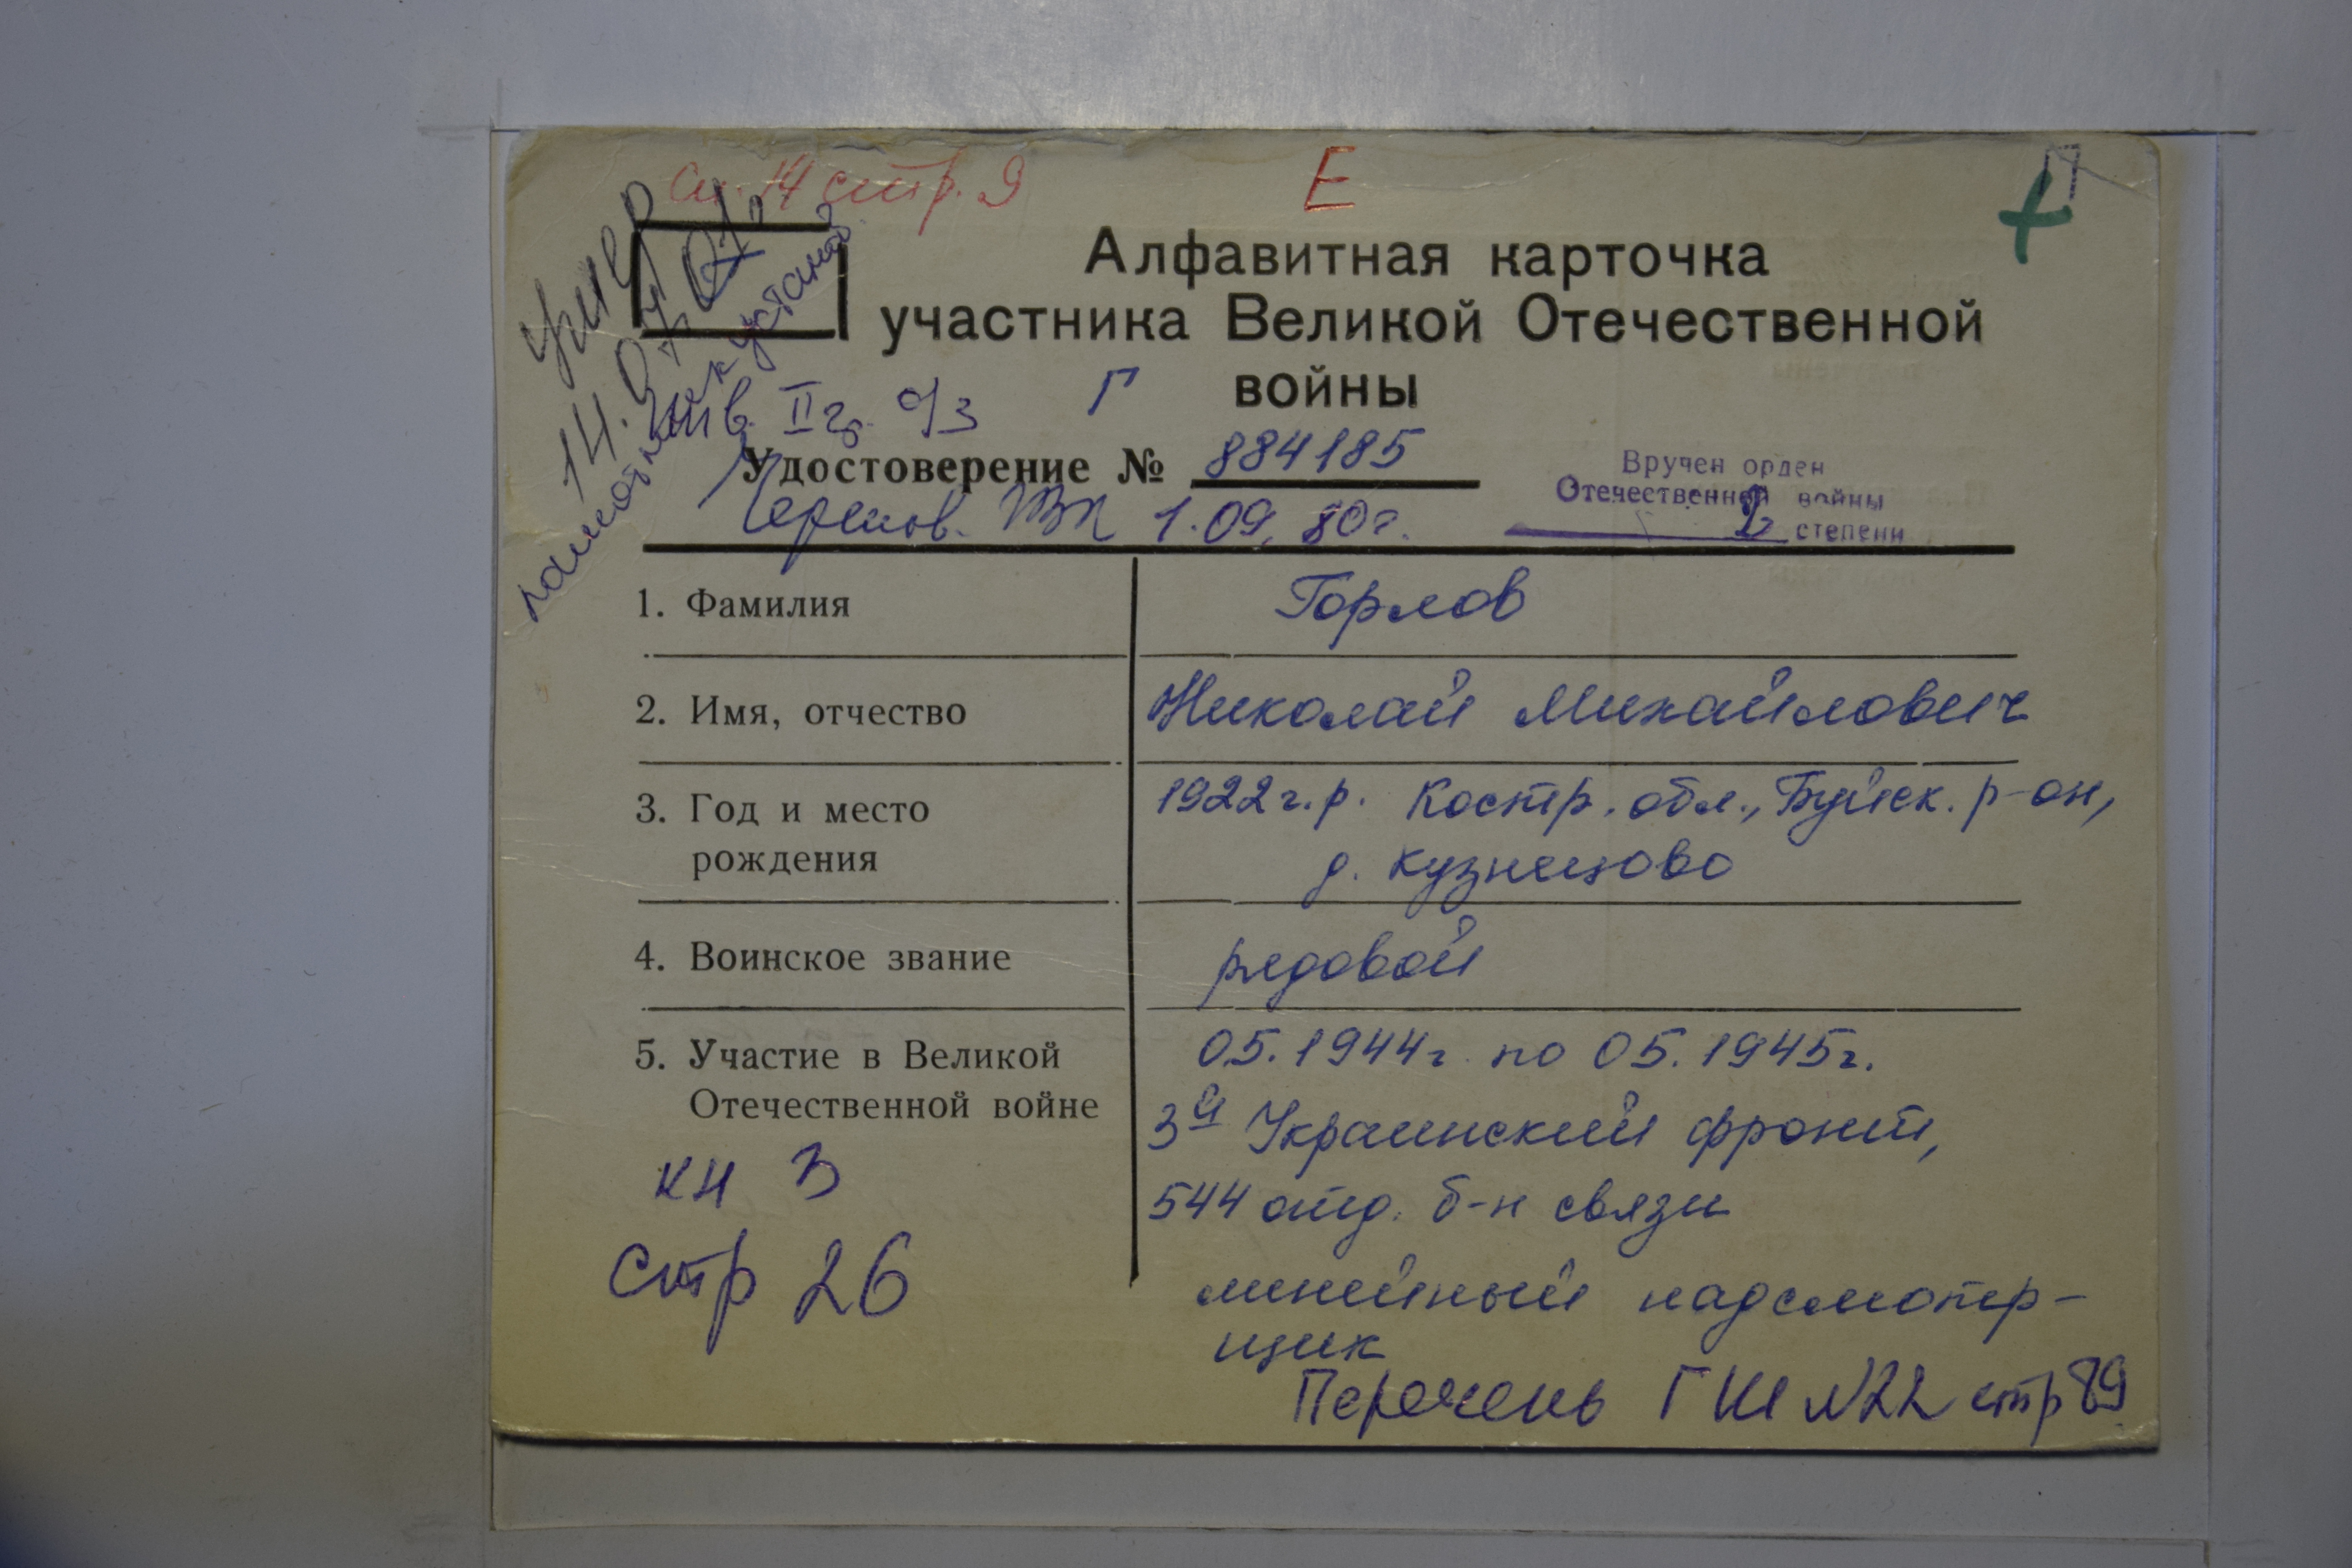 сп. 14 стр. 9
Е
П
умер
14.07.07.
памятник установ.
Алфавитная карточка
участника Великой Отечественной
войны
Г
инв. II гр. о/з
Удостоверение № 884185
ГВК 1.09.80г.
Вручен орден
Отечественной войны
2 степени
1. Фамилия
Горлов
2. Имя, отчество
Николай Михайлович
3. Год и место
рождения
1922 г.р. Костр. обл., Буйск. р-он,
д. Кузнецово
4. Воинское звание
рядовой
5. Участие в Великой
Отечественной войне
05.1944г. по 05.1945г.
3й Украинский фронт,
544 отд. б-н связи
линейный надсмотр-
щик
кн 3
стр 26
Перечень ГШ №22 стр 89